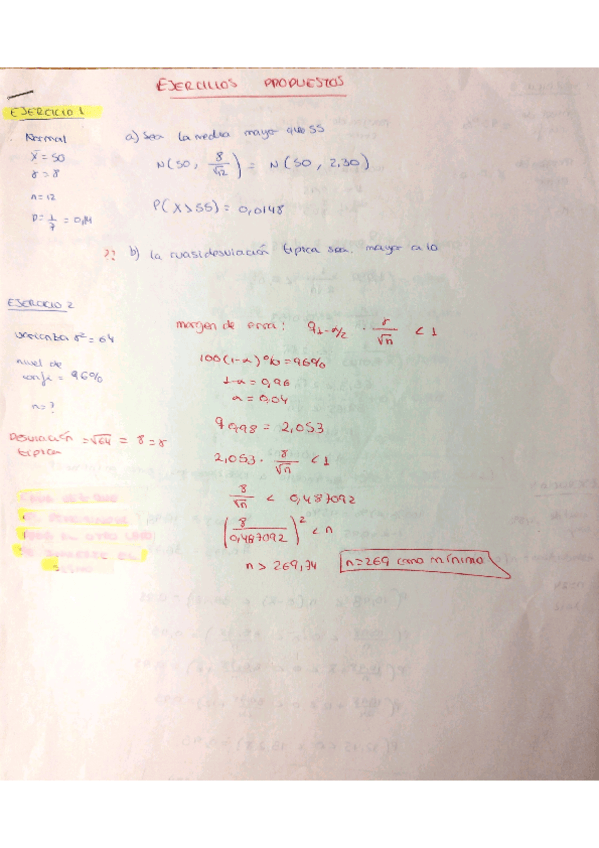 EJERCICIOS PROPUESTOS
EJERCICIO 1
Normal
x̄ = 50
σ = 8
n = 12
p = 1/7 = 0,14
a) Sea la media mayor que 55
N(50, 8/√12) = N(50, 2,30)
P(X > 55) = 0,0148
?? b) la cuasidesviación típica sea mayor a 10
EJERCICIO 2
varianza σ² = 64
nivel de
confi = 96%
n = ?
Desviación = √64 = 8 = σ
típica
margen de error: q 1-α/2 · σ/√n < 1
100(1-α)% = 96%
1-α = 0,96
α = 0,04
q 0,98 = 2,053
2,053 · 8/√n < 1
8/√n < 0,487092
(8/0,487092)² < n
n > 269,74
n = 269 como mínimo